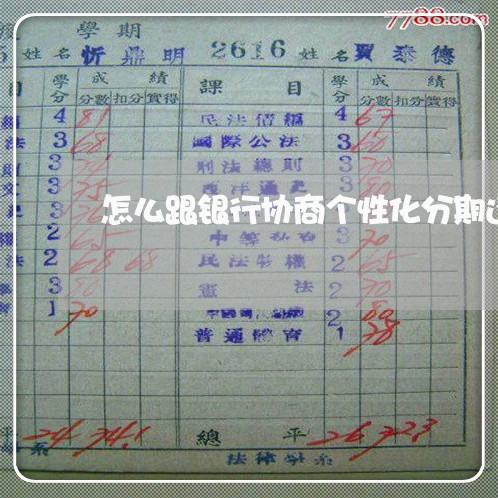 7788.com
學期
姓名 忻鼎明 2616 姓名 賈泰德
目 學分 成績 課目 學分 成績
分數 扣分 實得 分數 扣分 實得
4 81 民法債編 4 67
法 3 68 國際公法 3 60
3 刑法總則 3 70
文 3 75 西洋通史 3 80
怎么跟银行协商个性化分期
2 65 3 70
法 2 68 68 民法物權 2 65
3 80 憲法 2 70
1 70 2 80
普通體育 1 78
平 24 74.1 總平 26 72.3
系 法律學系